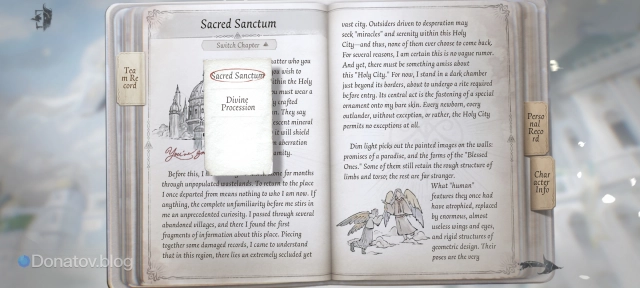 Sacred Sanctum
Switch Chapter
Tea
m Re
cord
Sacred Sanctum
Divine
Procession
atter who you
ou wish to
ithin the Holy
u must wear a
y crafted
n. They say
escent mineral
it will shield
aberration
amity.
Before this, I
d for months
through unpopulated wastelands. To return to the place
I once departed from means nothing to who I am now. If
anything, the complete unfamiliarity before me stirs in
me an unprecedented curiosity. I passed through several
abandoned villages, and there I found the first
fragments of information about this place. Piecing
together some damaged records, I came to understand
that in this region, there lies an extremely secluded yet
vast city. Outsiders driven to desperation may
seek "miracles" and serenity within this Holy
City—and thus, none of them ever choose to come back.
For several reasons, I am certain this is no vague rumor.
And yet, there must be something amiss about
this "Holy City." For now, I stand in a dark chamber
just beyond its borders, about to undergo a rite required
before entry. Its central act is the fastening of a special
ornament onto my bare skin. Every newborn, every
outlander, without exception, or rather, the Holy City
permits no exceptions at all.
Dim light picks out the painted images on the walls:
promises of a paradise, and the forms of the "Blessed
Ones." Some of them still retain the rough structure of
limbs and torso; the rest are far stranger.
What "human"
features they once had
have atrophied, replaced
by enormous, almost
useless wings and eyes,
and rigid structures of
geometric design. Their
poses are the very
Perso
nal
Reco
rd
Char
acter
Info
Donatov.blog